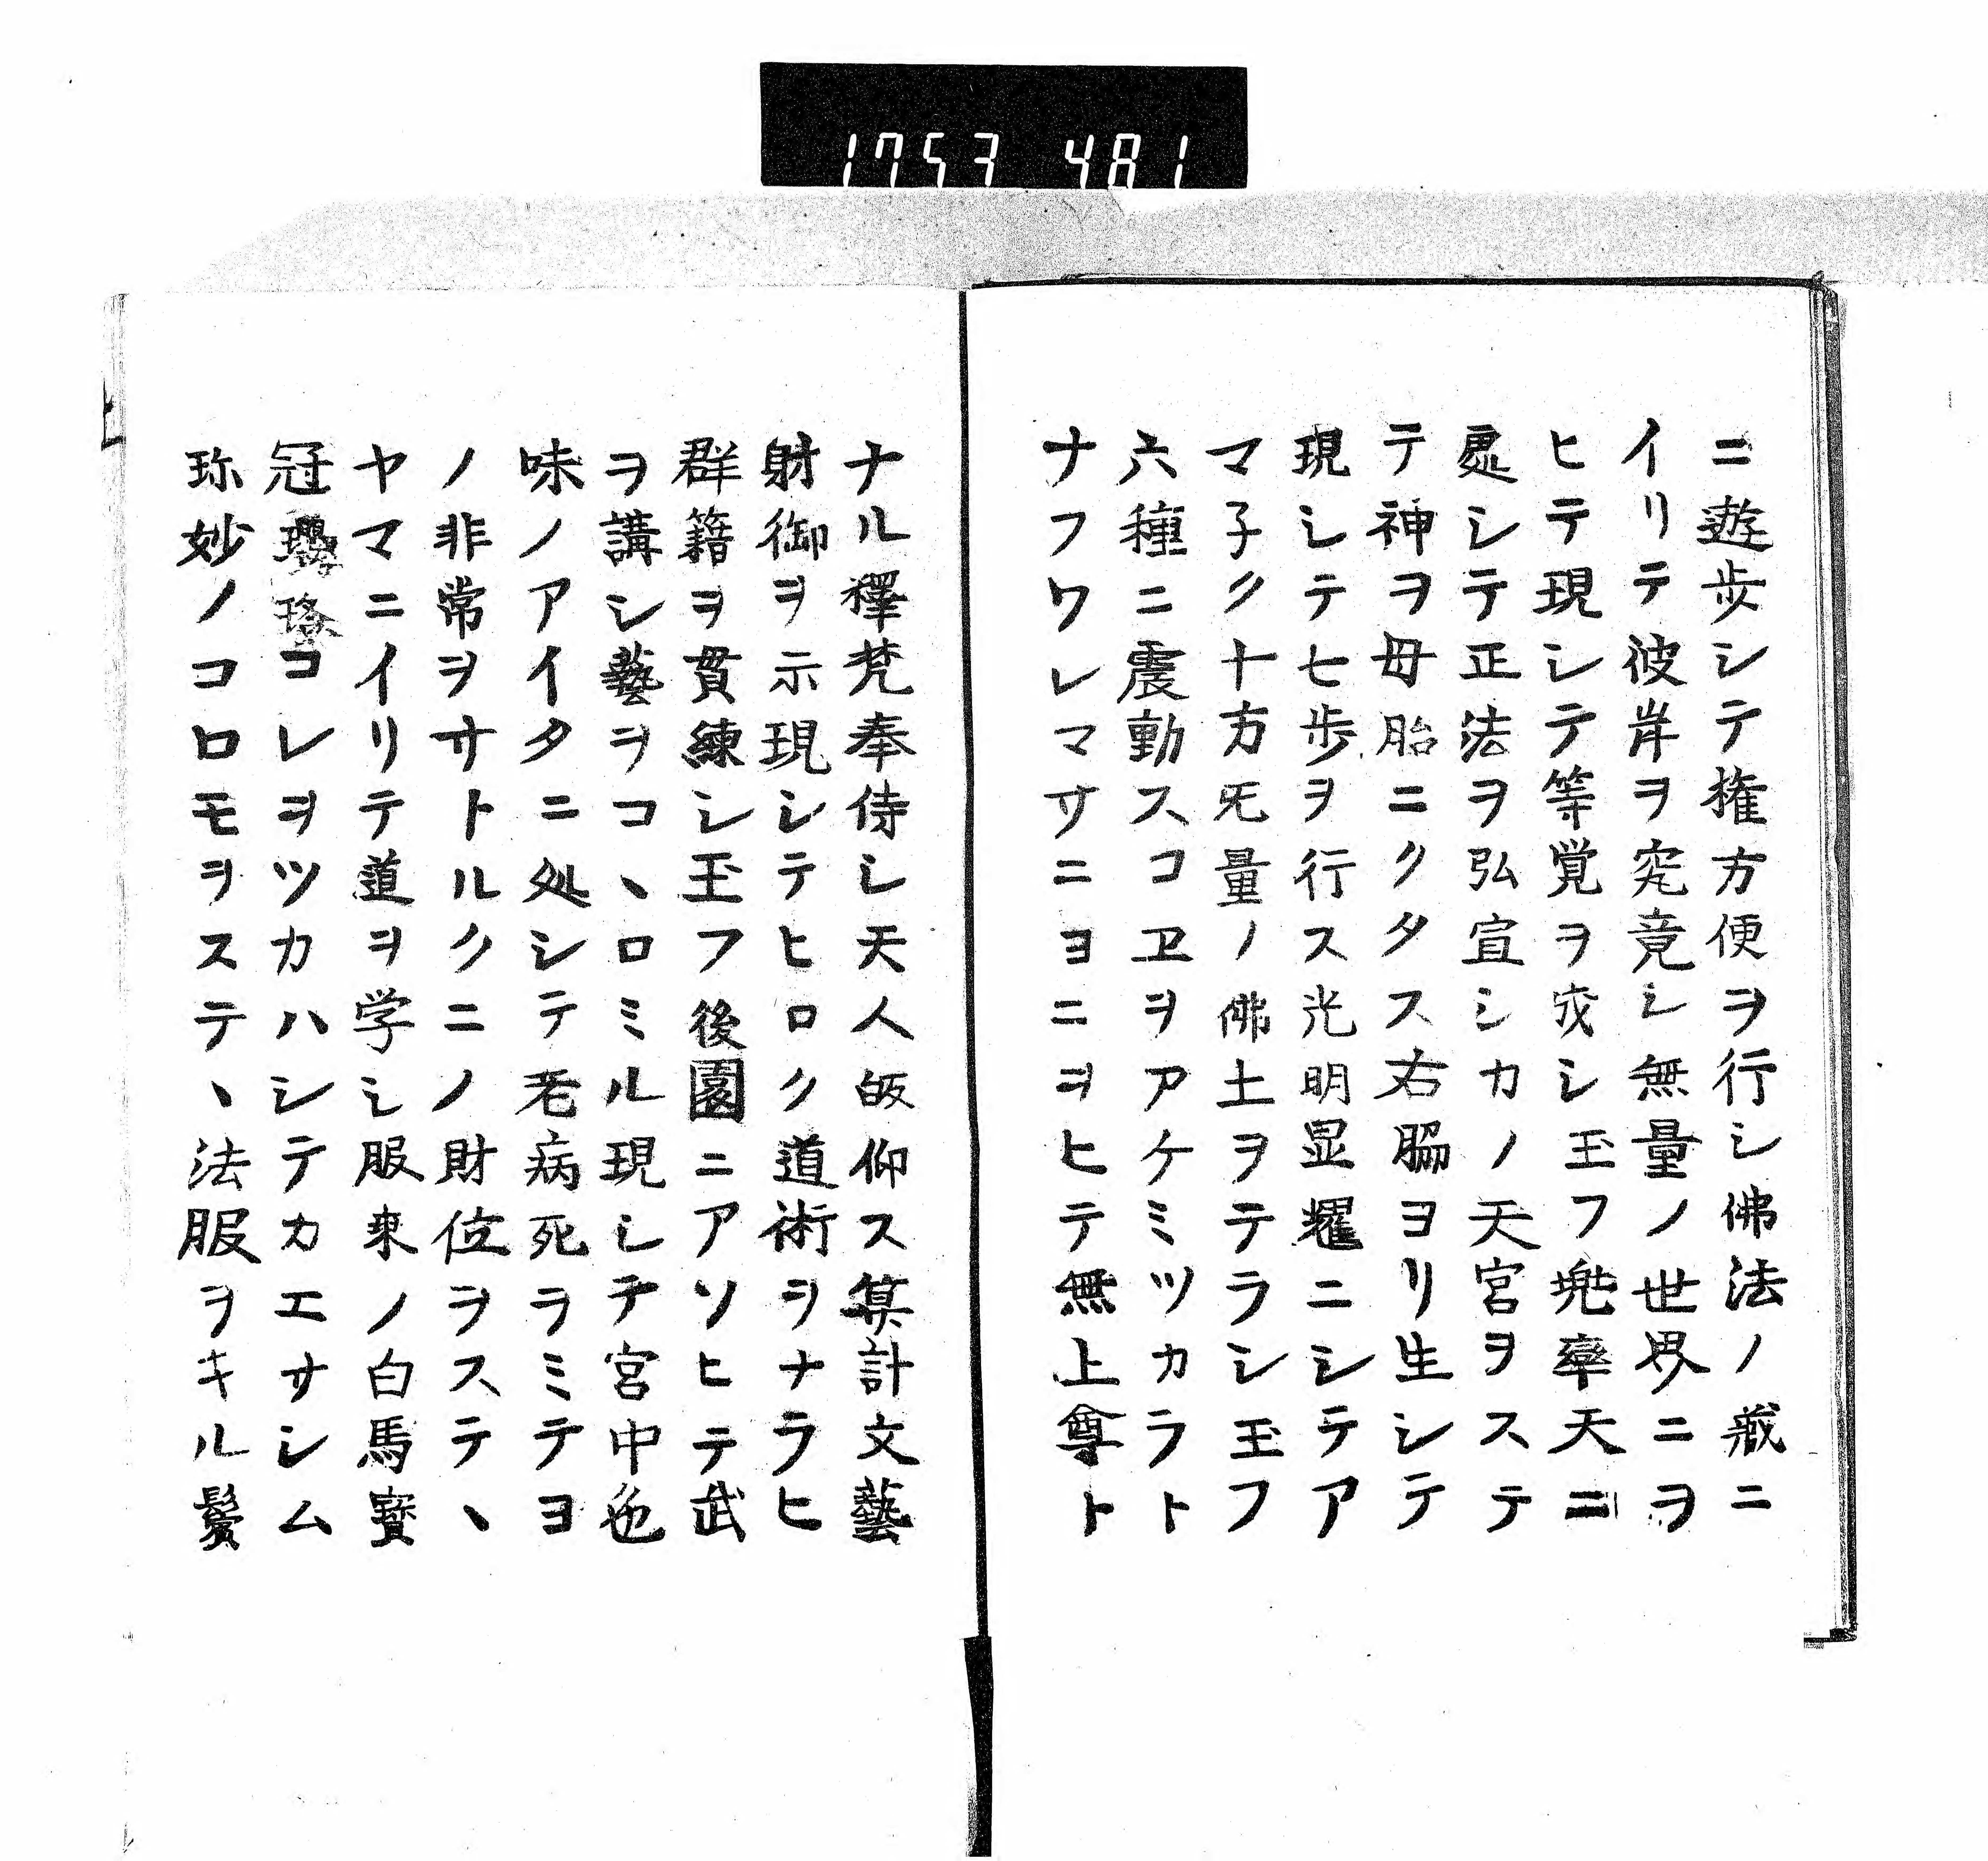 1753 481
ニ遊歩シテ権方便ヲ行シ佛法ノ蔵ニ
イリテ彼岸ヲ究竟シ無量ノ世界ニヲ
ヒテ現シテ等覚ヲ成シ玉フ兜率天ニ
處シテ正法ヲ弘宣シカノ天宮ヲステ
テ神ヲ母胎ニクタス右脇ヨリ生シテ
現シテ七歩ヲ行ス光明显耀ニシテア
マ子ク十方旡量ノ佛土ヲテラシ玉フ
六種ニ震動スコヱヲアケミツカラト
ナフワレマサニヨニヲヒテ無上尊ト
ナル釋梵奉侍シ天人皈仰ス算計文藝
射御ヲ示現シテヒロク道術ヲナラヒ
群籍ヲ貫練シ玉フ後園ニアソヒテ武
ヲ講シ藝ヲコヽロミル現シテ宮中色
味ノアイタニ処シテ老病死ヲミテヨ
ノ非常ヲサトルクニノ財位ヲステヽ
ヤマニイリテ道ヲ学シ服乗ノ白馬寳
冠瓔珞コレヲツカハシテカエサシム
珎妙ノコロモヲステヽ法服ヲキル鬢